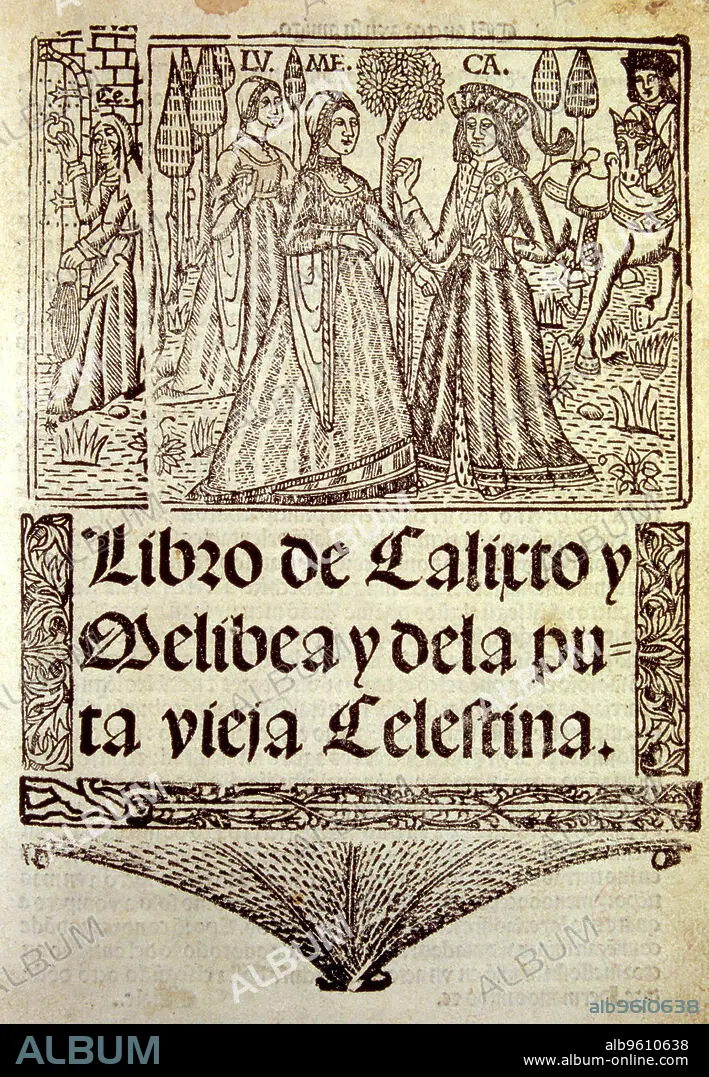 LV. ME. CA.
Ce.
Libro de Calixto y
Melibea y dela pu=
ta vieja Celestina.
alb9610638
ALBUM
alb9610638
www.album-online.com